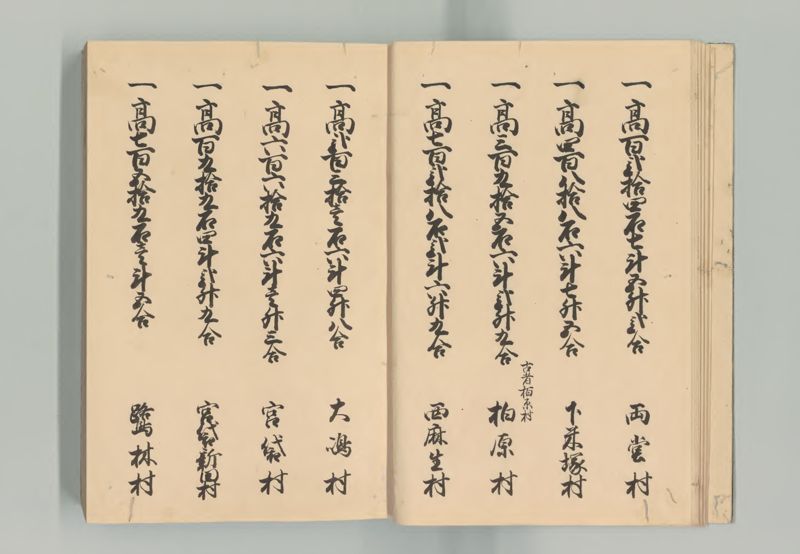 一高百弐拾四石七斗五升弐合 両堂村
一高四百八拾八石六斗七升五合 下米塚村
一高三百九拾五石六斗弐升九合 古者栢原村 柏原村
一高七百弐拾八石弐斗六升九合 西麻生村
一高弐百三拾壱石六斗四升八合 大嶋村
一高六百六拾九石六斗壱升三合 宮袋村
一高百九拾九石四斗弐升九合 宮袋新田村
一高七百五拾九石壱斗五合 鷺林村